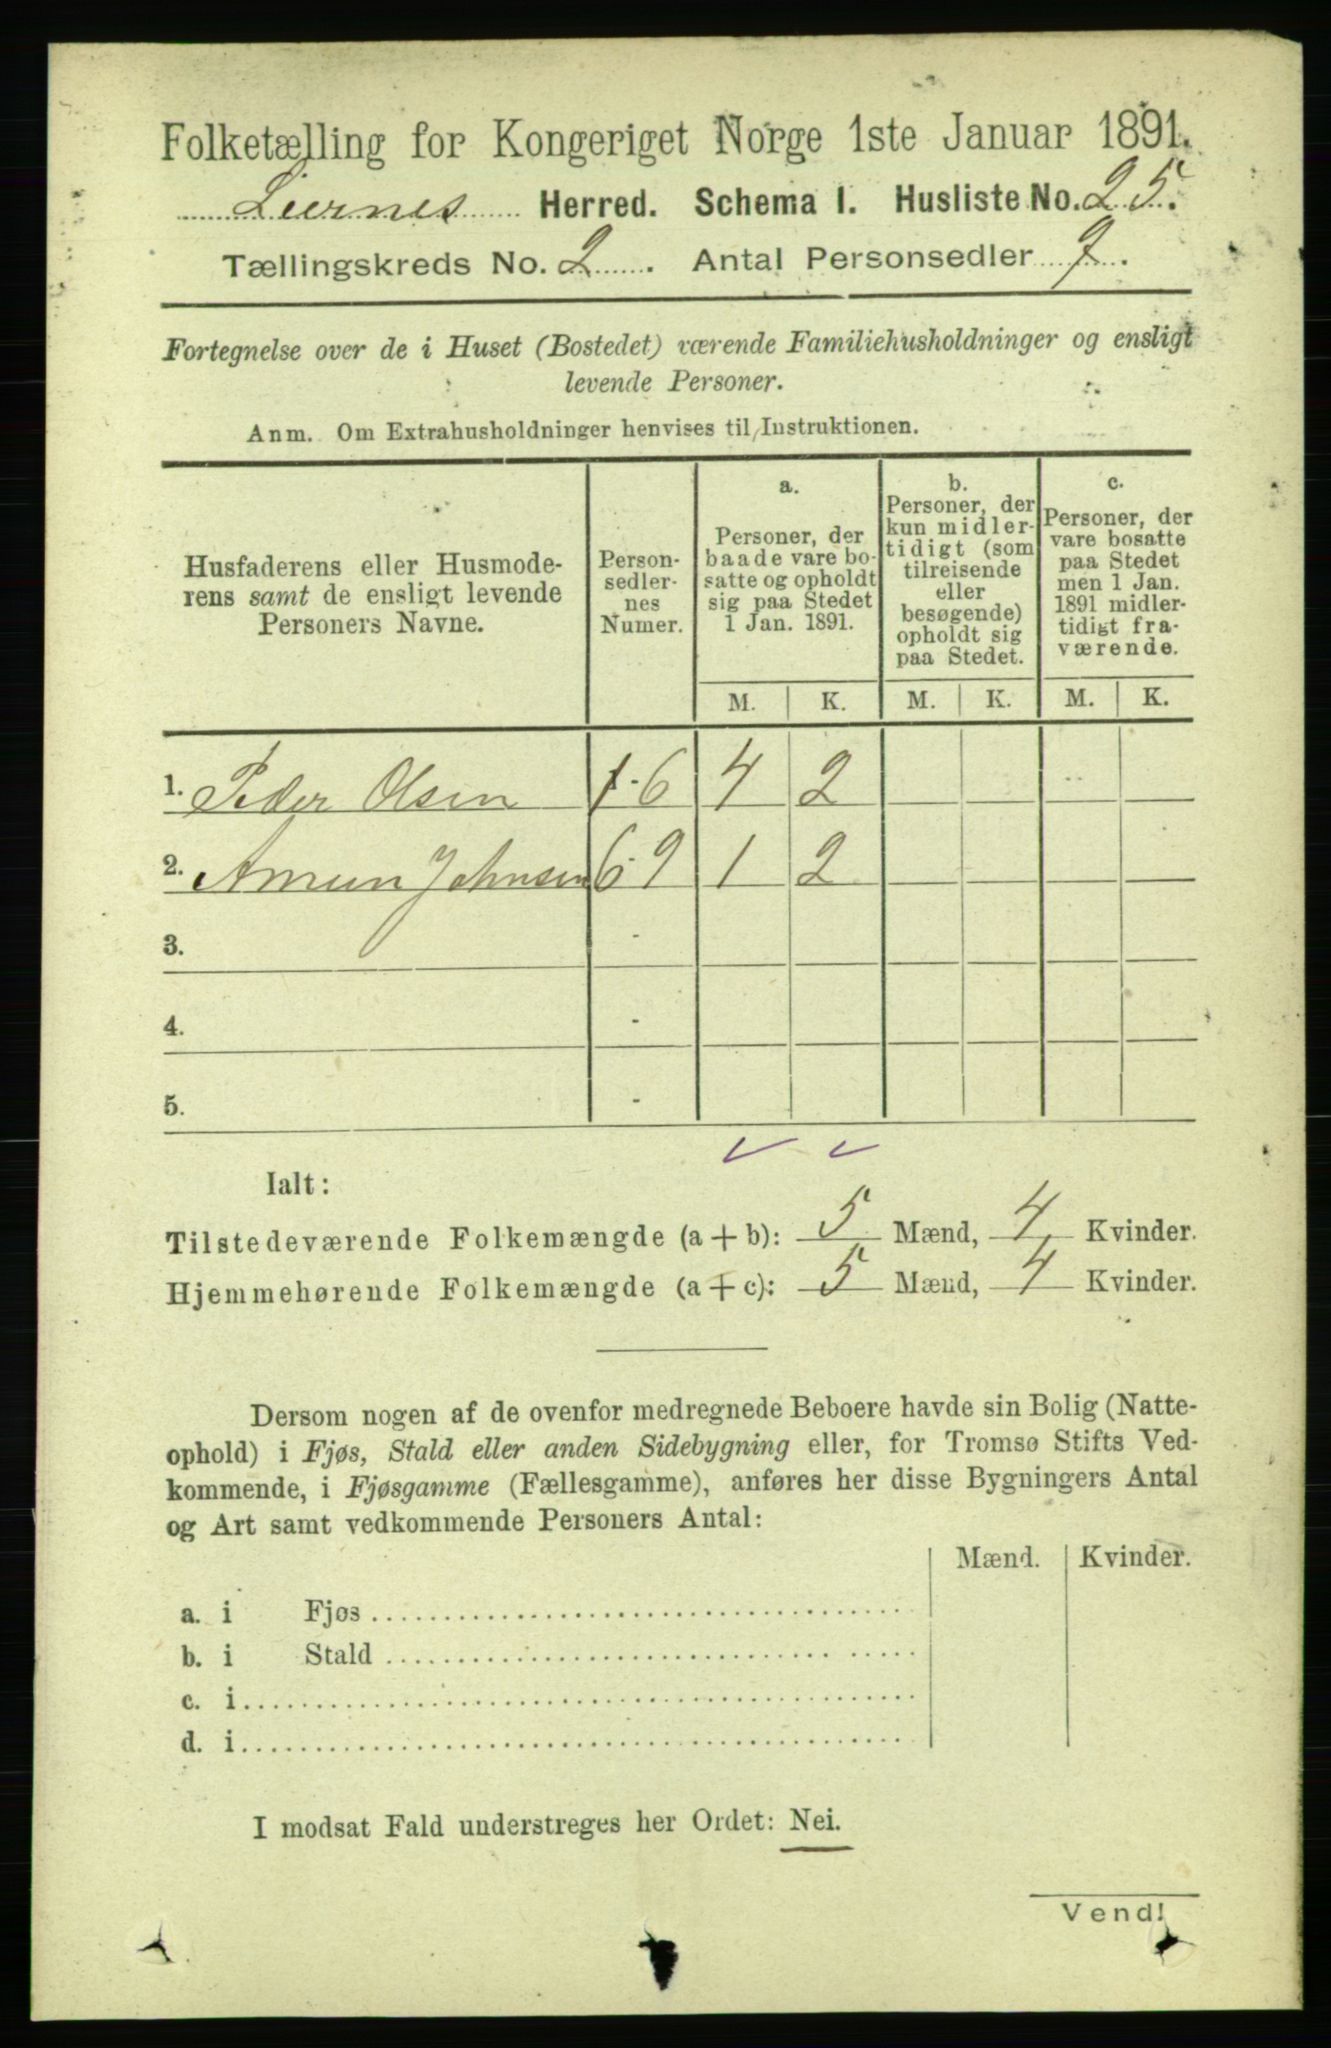 Folketælling for Kongeriget Norge 1ste Januar 1891.
Liernes Herred. Schema I. Husliste No. 25.
Tællingskreds No. 2. Antal Personsedler 9.
Fortegnelse over de i Huset (Bostedet) værende Familiehusholdninger og ensligt
levende Personer.
Anm. Om Extrahusholdninger henvises til Instruktionen.
Husfaderens eller Husmode-
rens samt de ensligt levende
Personers Navne.
Person-
sedler-
nes
Numer.
a.
Personer, der
baade vare bo-
satte og opholdt
sig paa Stedet
1 Jan. 1891.
b.
Personer, der
kun midler-
tidigt (som
tilreisende
eller
besøgende)
opholdt sig
paa Stedet.
c.
Personer, der
vare bosatte
paa Stedet
men 1 Jan.
1891 midler-
tidigt fra-
værende.
M. K. M. K. M. K.
1. Peder Olsen 1-6 4 2
2. Amun Johnsen 6-9 1 2
3. -
4. -
5. -
Ialt:
Tilstedeværende Folkemængde (a + b): 5 Mænd, 4 Kvinder.
Hjemmehørende Folkemængde (a + c): 5 Mænd, 4 Kvinder.
Dersom nogen af de ovenfor medregnede Beboere havde sin Bolig (Natte-
ophold) i Fjøs, Stald eller anden Sidebygning eller, for Tromsø Stifts Ved-
kommende, i Fjøsgamme (Fællesgamme), anføres her disse Bygningers Antal
og Art samt vedkommende Personers Antal:
Mænd. Kvinder.
a. i Fjøs
b. i Stald
c. i
d. i
I modsat Fald understreges her Ordet: Nei.
Vend!